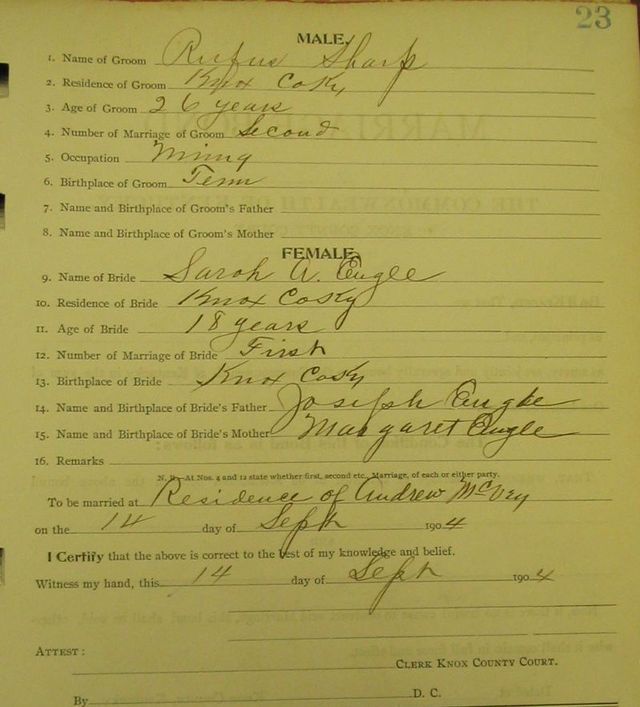 23
MALE.
1. Name of Groom Rufus Sharp
2. Residence of Groom Knox Co Ky
3. Age of Groom 26 years
4. Number of Marriage of Groom Second
5. Occupation Mining
6. Birthplace of Groom Tenn
7. Name and Birthplace of Groom's Father
8. Name and Birthplace of Groom's Mother
FEMALE.
9. Name of Bride Sarah A. Engle
10. Residence of Bride Knox Co Ky
11. Age of Bride 18 years
12. Number of Marriage of Bride First
13. Birthplace of Bride Knox Co Ky
14. Name and Birthplace of Bride's Father Joseph Engle
15. Name and Birthplace of Bride's Mother Margaret Engle
16. Remarks
N. B.—At Nos. 4 and 12 state whether first, second etc., Marriage, of each or either party.
To be married at Residence of Andrew McVey
on the 14 day of Sept 1904
I Certify that the above is correct to the best of my knowledge and belief.
Witness my hand, this 14 day of Sept 1904
ATTEST:
CLERK KNOX COUNTY COURT.
By D. C.